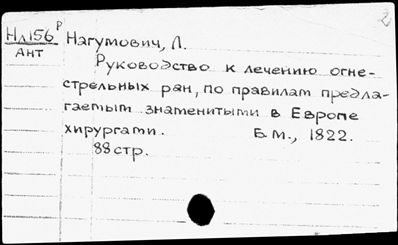 2
НлI56 Р Нагумович, Л.
Ант
Руководство к лечению огне-
стрельных ран, по правилам предла-
гаемым знаменитыми в Европе
хирургами. Б.м., 1822.
88 стр.